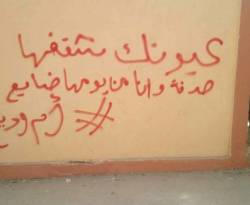 عيونك شقفها
صدفة وانا من يومها ضايع
# أم وديع